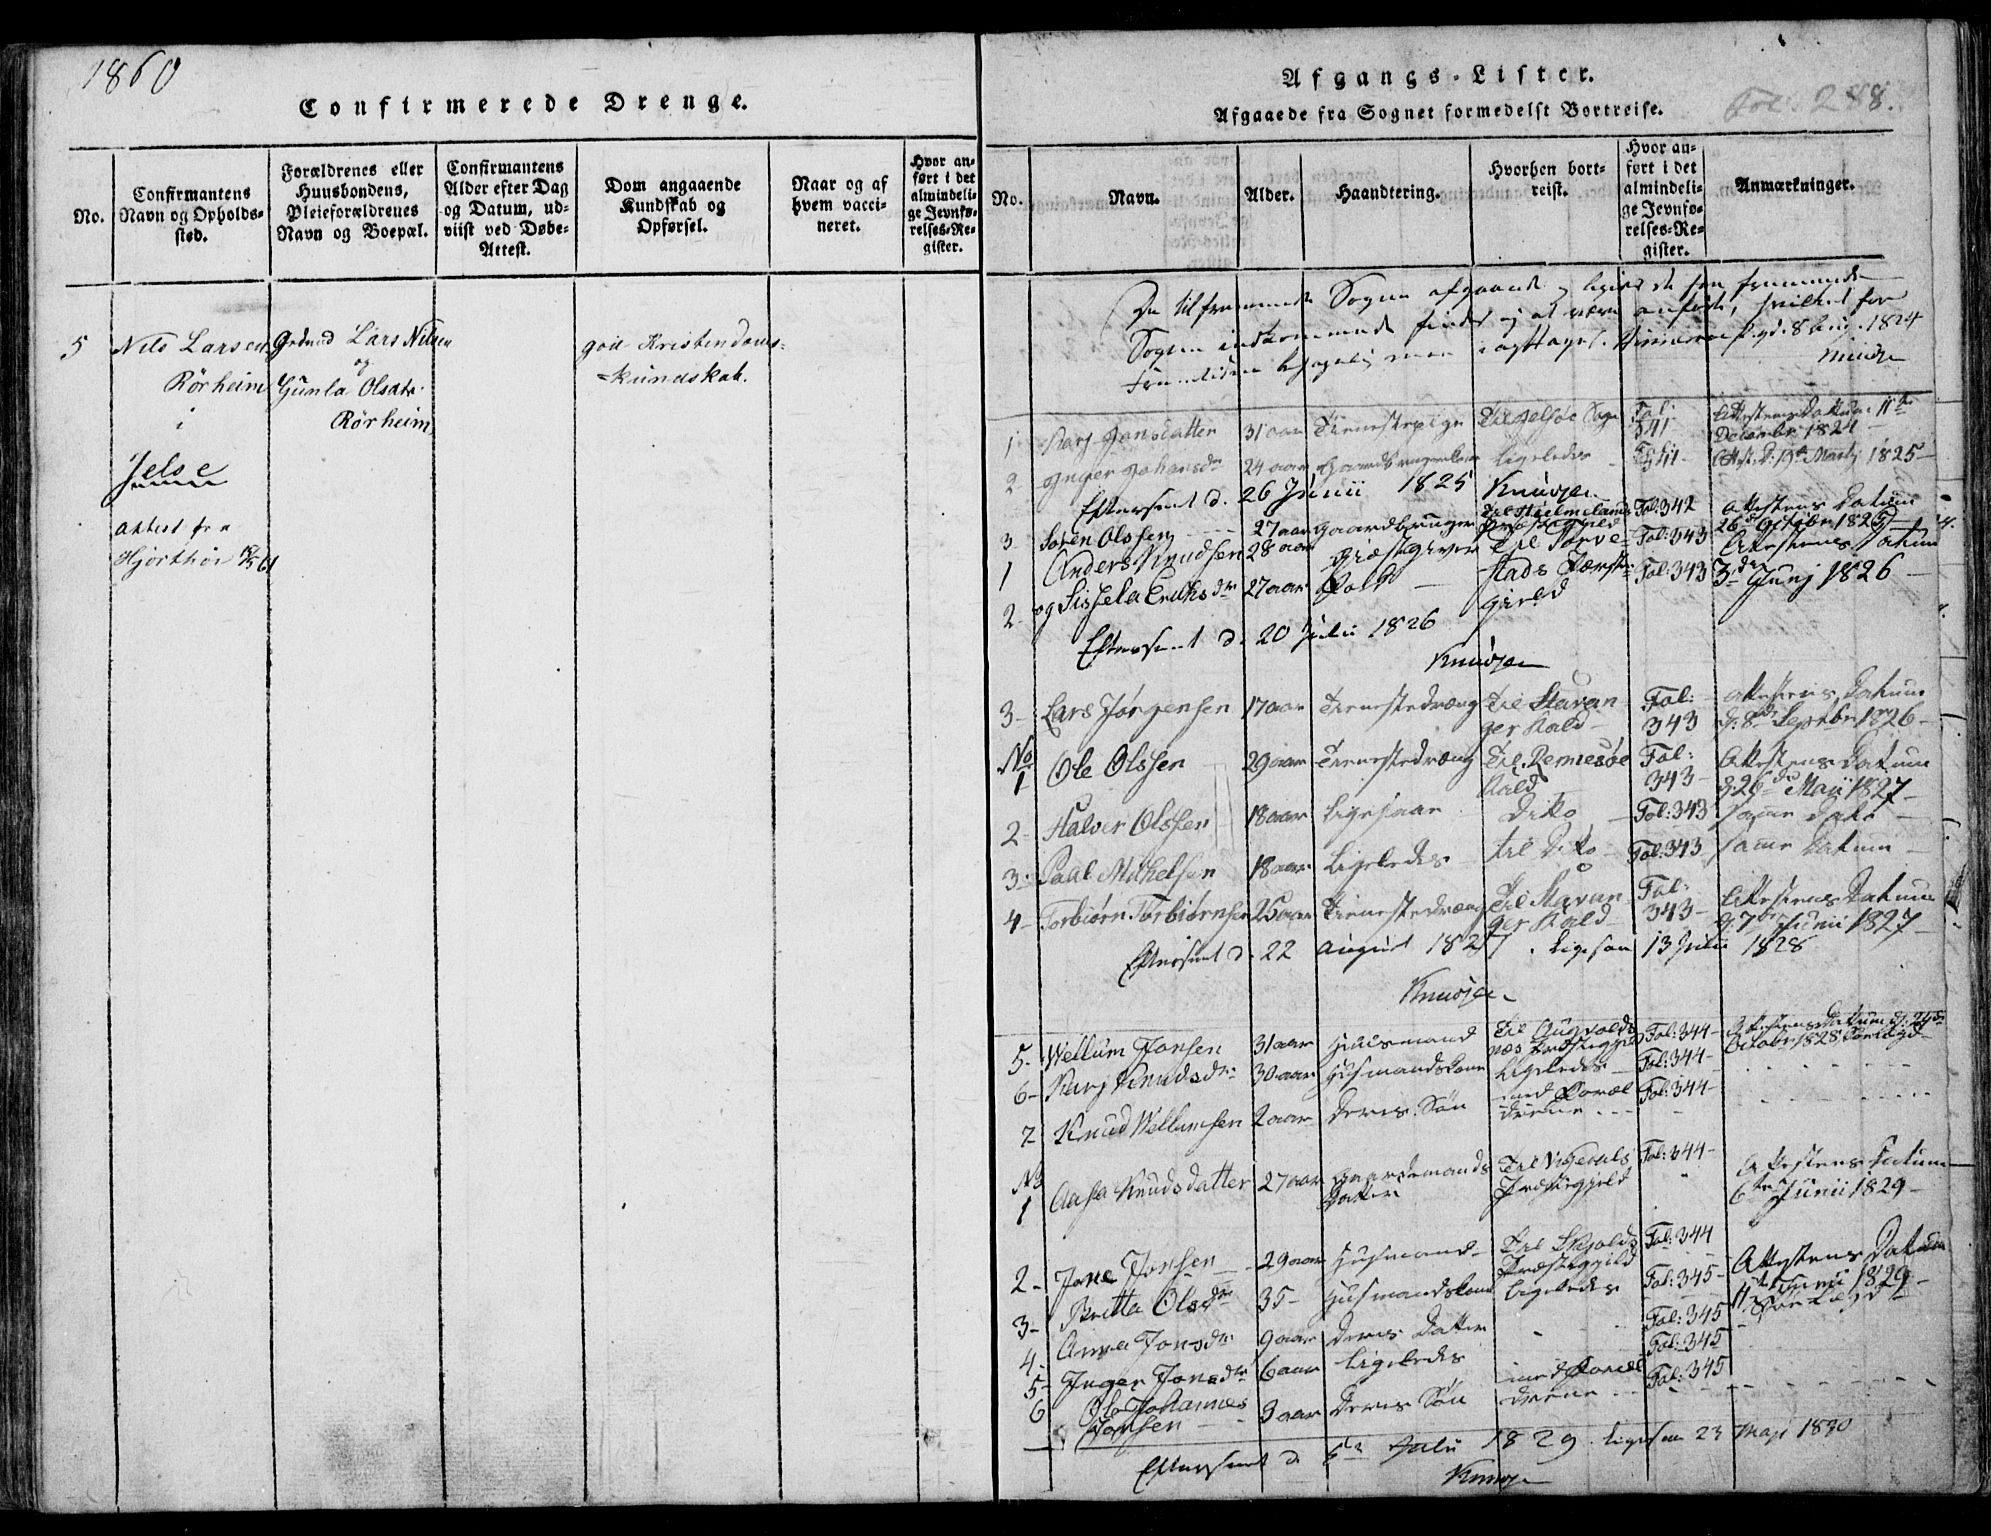 1860
Confirmerede Drenge.
No.
Confirmantens Navn og Opholds-sted.
Forældrenes eller Huusbondens, Pleieforældrenes Navn og Boepæl.
Confirmantens Alder efter Dag og Datum, ud-viist ved Døbe-Attest.
Dom angaaende Kundskab og Opførsel.
Naar og af hvem vacci-neret.
Hvor an-ført i det almindeli-ge Jevnfø-relses-Re-gister.
5 Nils Larsen Rørheim i Jelse
Grdmd Lars Nilsen og Gunla Olsatr. Rørheim
god Kristendoms-kundskab.
attest fra
Hjorthøi
Afgangs-Lister.
Afgaaede fra Sognet formedelst Bortreise.
Fol: 288.
No.
Navn.
Alder.
Haandtering.
Hvorhen bort-reist.
Hvor an-ført i det almindeli-ge Jevnfø-relses-Re-gister.
Anmærkninger.
De til fremmede Sogne afgaaede, ligesom de fra fremmede
Sogne indkommende findes ej at være anførte, hvilket for
Fremtiden iagttages. 1824
1 Karj Jonsdatter 31 aar Tienestepige Til Jelsøe Sogn Fol: 341 Attestens Datum 11te Decembr 1824
2 Inger Johansdr 24 aar Ligeledes Fol: 341 Attst. D. 19de Martj 1825
Efterseet d. 26 Junii 1825 Knudsen
3 Søren Olssen 27 aar Gaardbruger Til Hielmelands Præstegield Fol: 342 Attestens Datum 26de Octobr 1825
1 Anders Knudsen 28 aar Giæstgiver Til Torve- Fol: 343 Attestens Datum
2 og Sissela Erichsdr 27 aar Folk stads Præste-gield Fol: 343 3die Junj 1826
Efterseet d. 20 Julii 1826
Knudsen
3 Lars Jørgensen 17 aar Tienestedræng Til Stavanger Fol: 343 Attestens Datum d: 8de Septbr 1826
No 1 Ole Olssen 29 aar Tienestedræng Til Rennesøe Fol: 343 Attestens Datum d: 26de Maii 1827
2 Halvor Olssen 18 aar Ligesaa Ditto Fol: 343 samme Dato
3 Paal Michelsen 18 aar Ligeledes til Ditto Fol: 343 samme Datum
4 Torbiørn Torbiørnsen 25 aar Tienestedræng Til Stavanger Fol: 343 Attestens Datum d: 7de Junii 1827
Efterseet d. 22 August 1827. Ligesaa 13 Julii 1828
Knudsen
5 Wellum Jonsen 31 aar Huusmand Til Augvaldsnæs Præstegield Fol: 344 Attestens Datum d: 24de Octobr 1828
6 Karj Knudsdr 30 aar Husmandskone Ligeledes Fol: 344
7 Knud Wellumsen 2 aar Deres Søn med Foræl-drene Fol: 344
No 1 Aasa Knudsdatter 27 aar Gaardmands Datter Til Vigedals Præstegjeld Fol: 344 Attestens Datum 6te Junii 1829
2 Jone Jonsen 29 aar Husmand Til Skjolds Præstegjeld Fol: 344 Attestens Datum
3 Britta Olsdr 35 Husmandskone Ligeledes Fol: 345 11te Junii 1829
4 Anna Jonsdr 9 aar Deres Datter Fol: 345
5 Inger Jonsdr 6 aar Ligeledes Fol: 345
6 Ole Johannes Jonsen 3 aar Deres Søn med Foræl-drene Fol: 345
Efterseet d. 5te Julii 1829. Ligesaa 23 Maji 1830
Knudsen